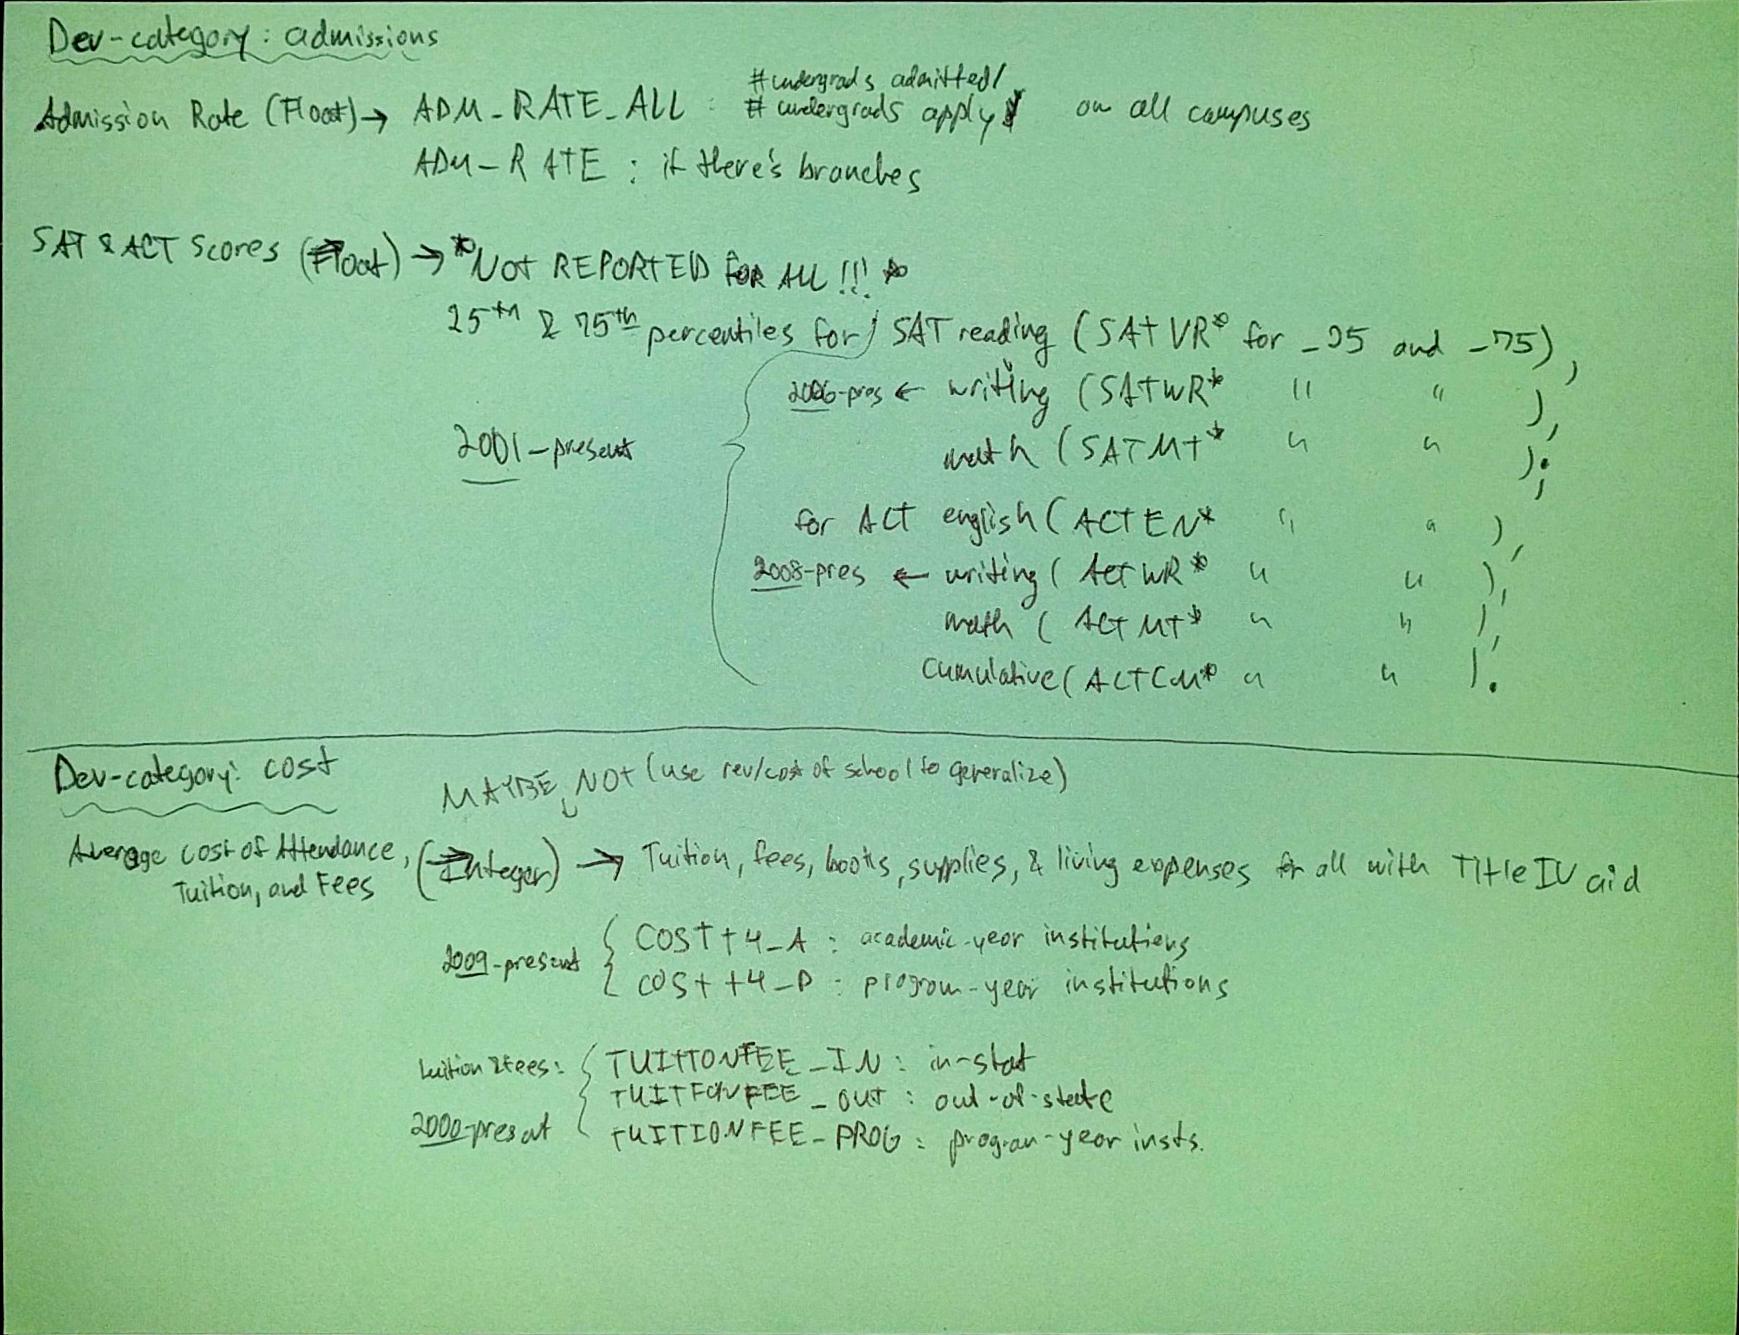 Dev-category: admissions
#undergrads admitted/
Admission Rate (Float) → ADM_RATE_ALL : # undergrads apply on all campuses
ADM_RATE : if there's branches
SAT & ACT Scores (Float) → *NOT REPORTED FOR ALL!!! *
25th & 75th percentiles for SAT reading (SATVR* for _25 and _75),
2006-pres ← writing (SATWR* " " ),
2001-present
math (SATMT* " " );
for ACT english (ACTEN* " " ),
2008-pres ← writing (ACTWR* " " ),
math (ACTMT* " " ),
cumulative (ACTCM* " " ).
Dev-category: cost
MAYBE NOT (use rev/cost of school to generalize)
Average cost of Attendance, (Integer) → Tuition, fees, books, supplies, & living expenses for all with Title IV aid
Tuition, and Fees
2009-present { COSTT4_A : academic-year institutions
COSTT4_P : program-year institutions
tuition & fees: { TUITIONFEE_IN : in-stat
TUITFONFEE_OUT : out-of-state
2000-present TUITIONFEE_PROG : program-year insts.